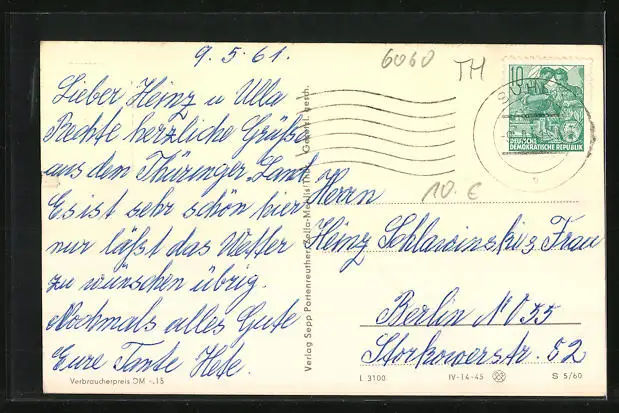 9.5.61.
6060
TH
Lieber Heinz u Ulla
Rechte herzliche Grüße
aus dem Thüringer Land
Es ist sehr schön hier
nur läßt das Wetter
zu wünschen übrig.
Nochmals alles Gute
Eure Tante Hete.
Verbraucherpreis DM -.15
Verlag Sepp Portenreuther, Zella-Mehlis/Thür. gesch.
10
DEUTSCHE
DEMOKRATISCHE REPUBLIK
10.€
Herrn
Heinz Schlawinski u Frau
Berlin NO 55
Storkowerstr. 52
L 3100
IV-14-45
S 5/60